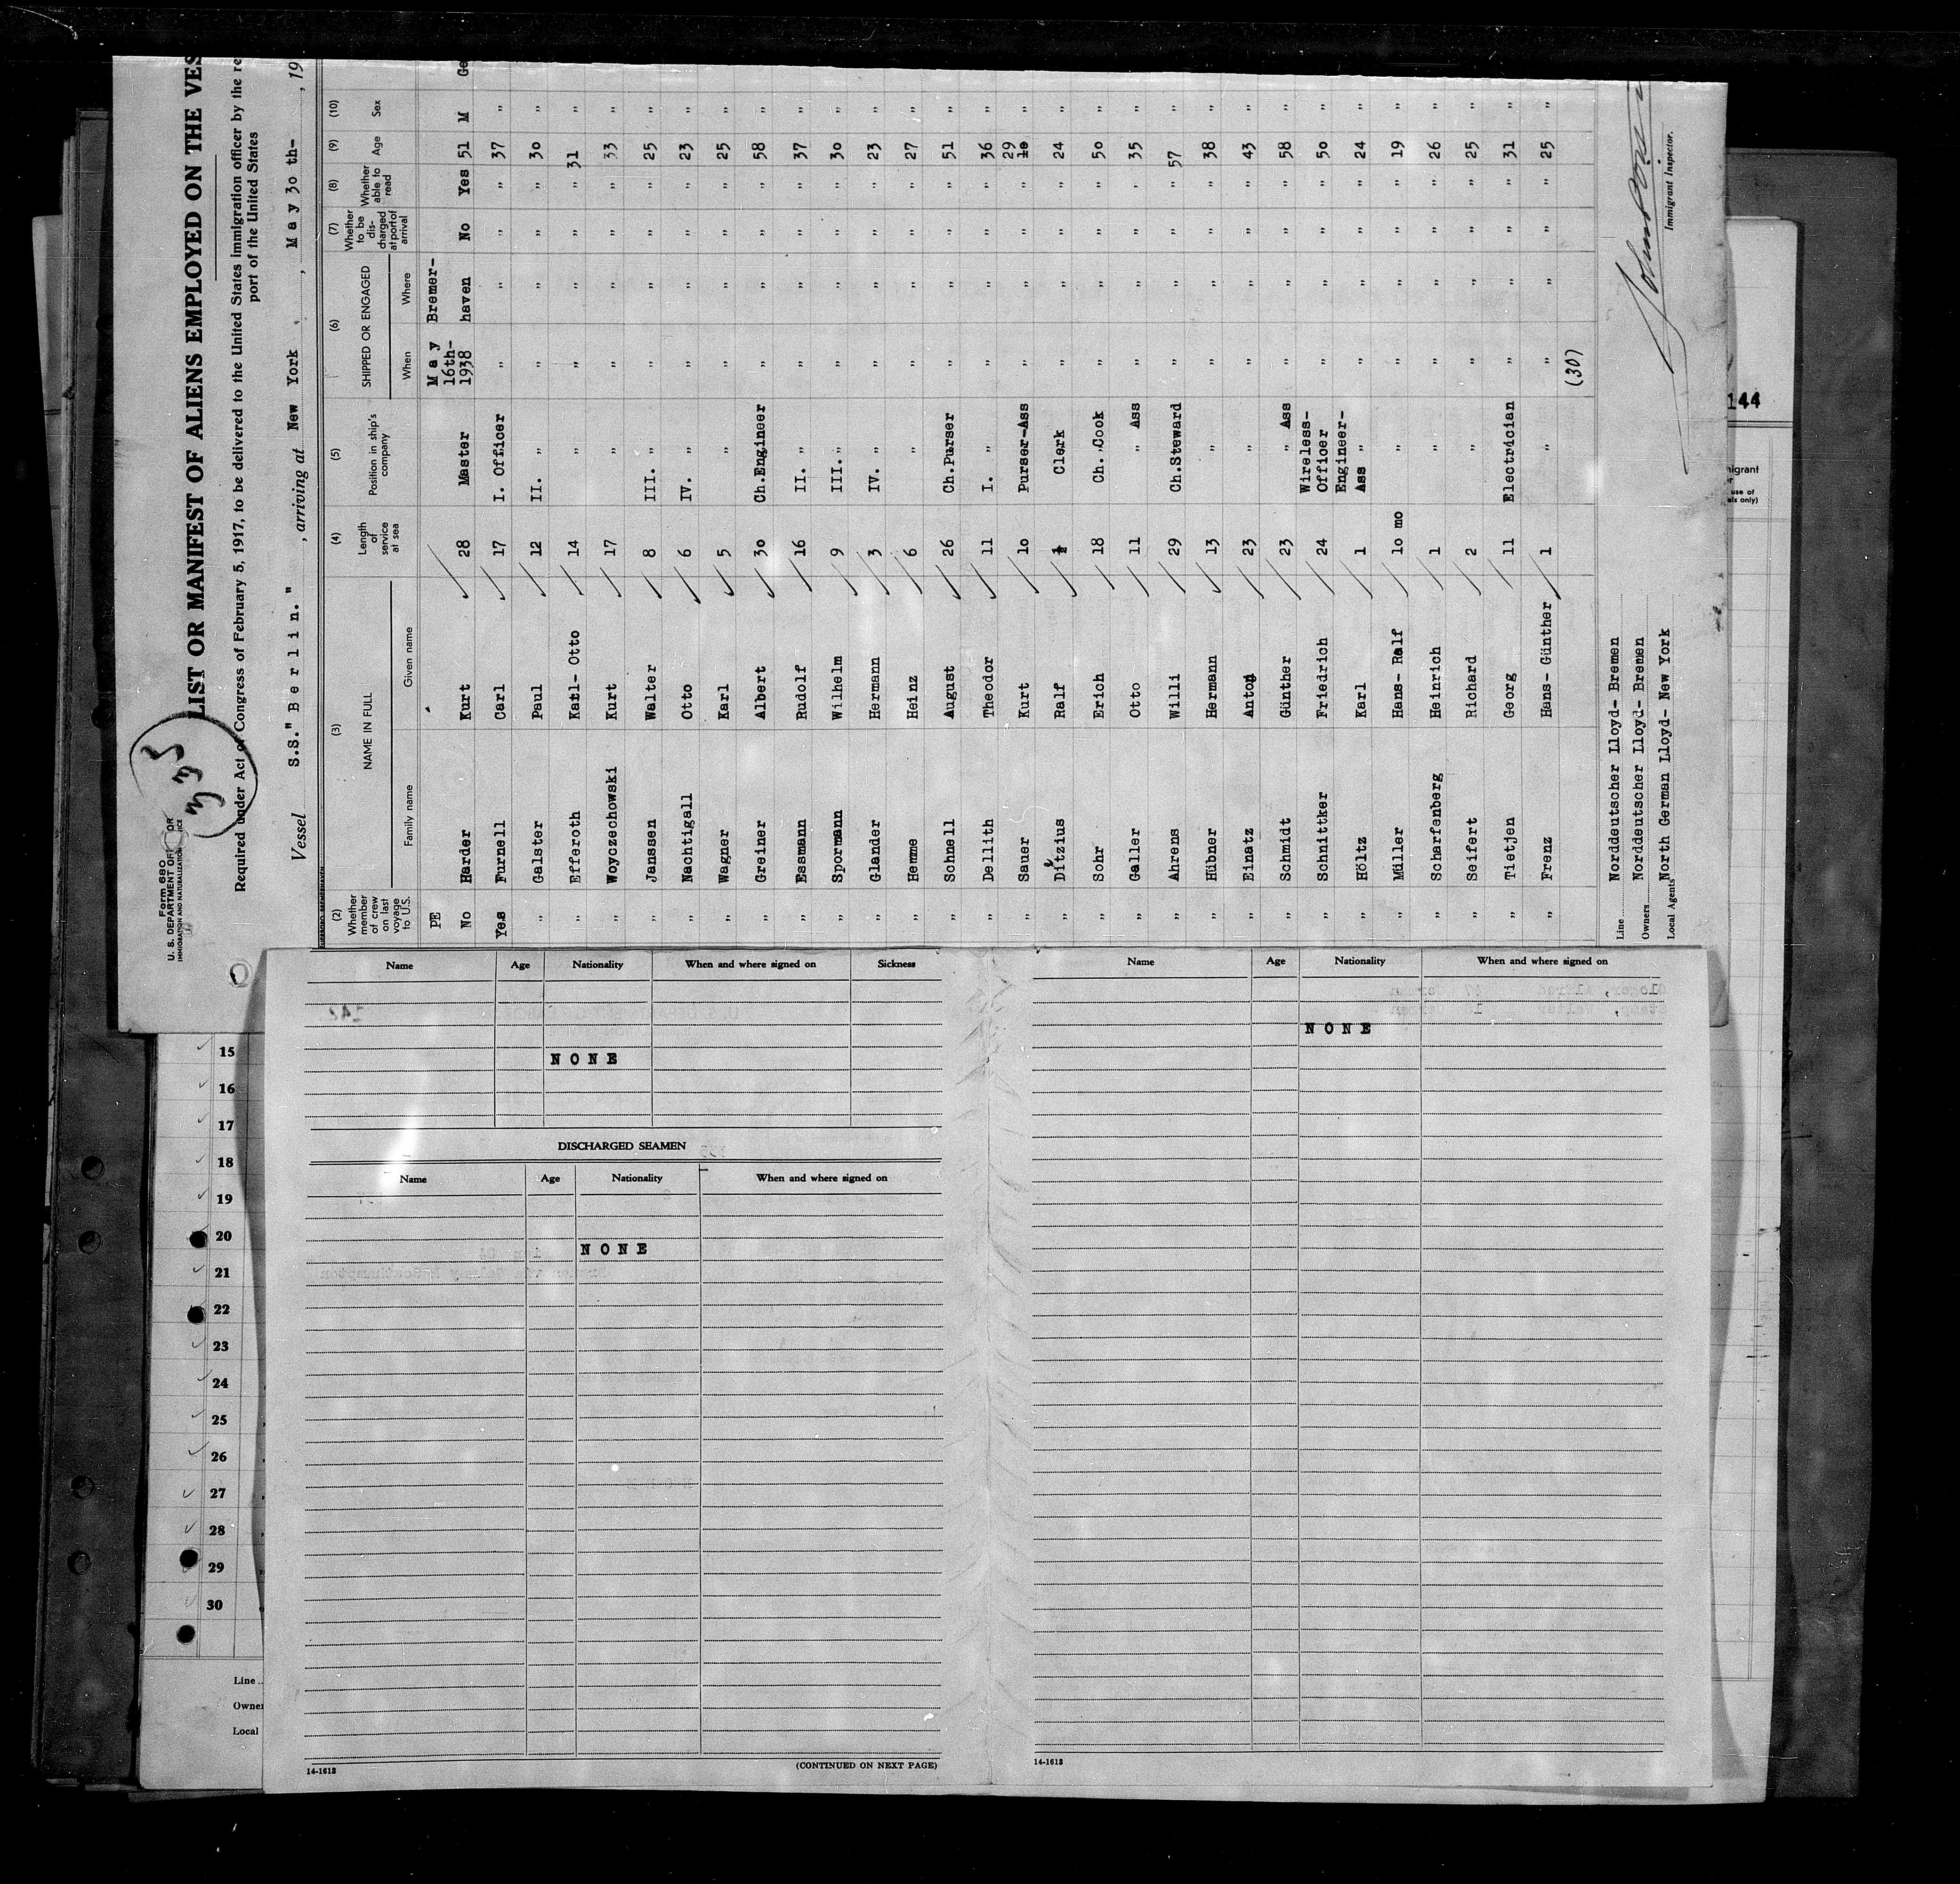 Form 680
U. S. DEPARTMENT OF LABOR
IMMIGRATION AND NATURALIZATION SERVICE
LIST OR MANIFEST OF ALIENS EMPLOYED ON THE VES
Required under Act of Congress of February 5, 1917, to be delivered to the United States immigration officer by the re
port of the United States
Vessel S.S." B e r l i n. " , arriving at New York , M a y 3o th- , 19
(2) (3) (4) (5) (6) (7) (8) (9) (10)
Whether member of crew on last voyage to U.S. NAME IN FULL Length of service at sea Position in ship's company SHIPPED OR ENGAGED Whether to be discharged at port of arrival Whether able to read Age Sex
Family name Given name When Where
PE M a y Bremer-
16th-
No Harder Kurt 28 Master 1938 haven No Yes 51 M Ge
Yes Furnell Carl 17 I. Officer " " " " 37 "
" Galster Paul 12 II. " " " " " 3o "
" Efferoth Karl- Otto 14 " " " " " 31 "
" Woyczechowski Kurt 17 " " " " " 33 "
" Janssen Walter 8 III. " " " " " 25 "
" Nachtigall Otto 6 IV. " " " " " 23 "
" Wagner Karl 5 " " " " " 25 "
" Greiner Albert 3o Ch.Engineer " " " " 58 "
" Essmann Rudolf 16 II. " " " " " 37 "
" Spormann Wilhelm 9 III. " " " " " 3o "
" Glander Hermann 3 IV. " " " " " 23 "
" Hemme Heinz 6 " " " " " 27 "
" Schnell August 26 Ch.Purser " " " " 51 "
" Dellith Theodor 11 I. " " " " " 36 "
" Sauer Kurt 1o Purser-Ass " " " " 29 "
" Ditzius Ralf ½ Clerk " " " " 24 "
" Sohr Erich 18 Ch. Cook " " " " 5o "
" Galler Otto 11 " Ass " " " " 35 "
" Ahrens Willi 29 Ch.Steward " " " " 57 "
" Hübner Hermann 13 " " " " " 38 "
" Einatz Anton 23 " " " " " 43 "
" Schmidt Günther 23 " Ass " " " " 58 "
Wireless-
" Schnittker Friedrich 24 Officer " " " " 5o "
Engineer-
" Höltz Karl 1 Ass " " " " " 24 "
" Müller Hans- Ralf 1o mo " " " " " 19 "
" Scharfenberg Heinrich 1 " " " " " 26 "
" Seifert Richard 2 " " " " " 25 "
" Tietjen Georg 11 Electrician " " " " 31 "
" Frenz Hans- Günther 1 " " " " " 25 "
(30)
Line Norddeutscher Lloyd- Bremen
Owners Norddeutscher Lloyd- Bremen
Local Agents North German Lloyd- New York
Immigrant Inspector.
144
Name Age Nationality When and where signed on Sickness
N O N E
DISCHARGED SEAMEN
Name Age Nationality When and where signed on
N O N E
14-1613
(CONTINUED ON NEXT PAGE)
Name Age Nationality When and where signed on
N O N E
14-1613
15
16
17
18
19
20
21
22
23
24
25
26
27
28
29
30
Line
Owner
Local